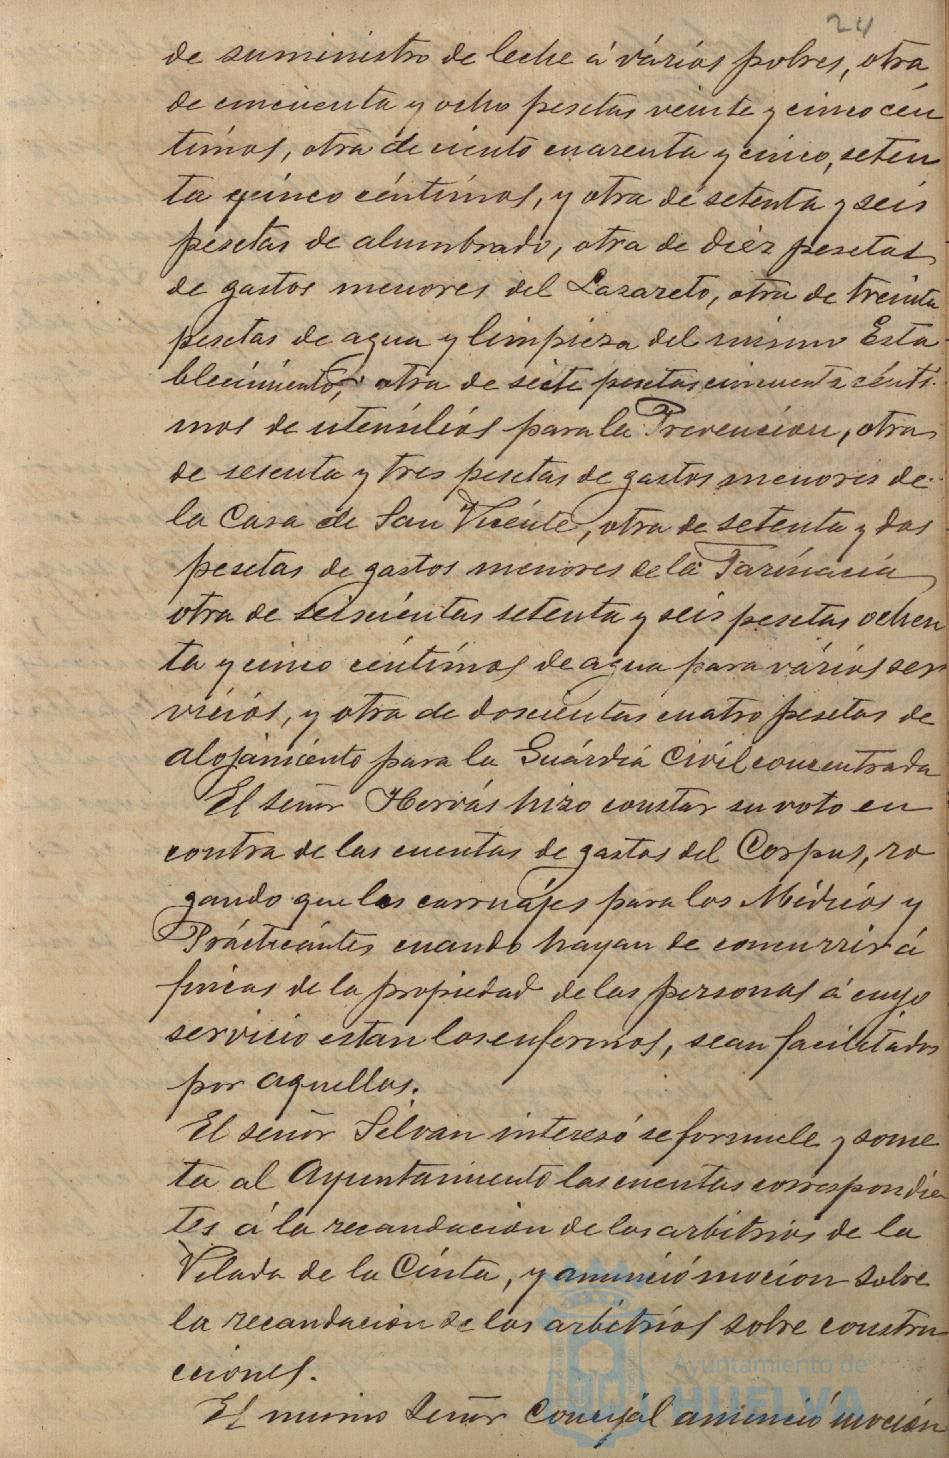 24
de suministro de leche á vários pobres, otra
de cincuenta y ocho pesetas veinte y cinco cén
timos, otra de ciento cuarenta y cinco, seten
ta y cinco céntimos, y otra de setenta y seis
pesetas de alumbrado, otra de diez pesetas
de gastos menores del Lazareto, otra de treinta
pesetas de agua y limpieza del mismo Esta-
blecimiento, otra de siete pesetas cincuenta cénti-
mos de utensilios para la Prevención, otra
de sesenta y tres pesetas de gastos menores de
la Casa de San Vicente, otra de setenta y dos
pesetas de gastos menores de la Farmacia
otra de seiscientas setenta y seis pesetas ochen
ta y cinco céntimos de agua para vários ser
vicios, y otra de doscientas cuatro pesetas de
alojamiento para la Guárdia Civil concentrada
El señor Hervás hizo constar su voto en
contra de las cuentas de gastos del Corpus, ro
gando que los carruajes para los Médicos y
Practicantes cuando hayan de concurrir á
fincas de la propiedad de las personas á cuyo
servicio estan los enfermos, sean facilitados
por aquellas.
El señor Silván interesó se formule y some
ta al Ayuntamiento las cuentas correspondien
tes á la recaudación de los arbitrios de la
Velada de la Cinta, y anunció mocion sobre
la recaudación de los arbitrios sobre constru
cciones.
El mismo Señor Concejal anunció moción
Ayuntamiento de
HUELVA